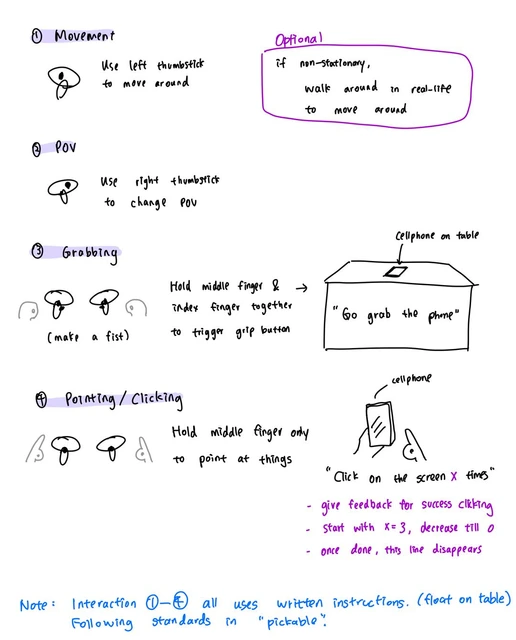 ① Movement
Use left thumbstick
to move around
Optional
if non-stationary,
walk around in real-life
to move around
② POV
Use right thumbstick
to change POV
③ Grabbing
(make a fist)
Hold middle finger &
index finger together →
to trigger grip button
Cellphone on table
"Go grab the phone"
④ Pointing / Clicking
Hold middle finger only
to point at things
cellphone
"Click on the screen X times"
- give feedback for success clicking
- start with X=3, decrease till 0
- once done, this line disappears
Note: Interaction ①-④ all uses written instructions. (float on table)
Following standards in "pickable".